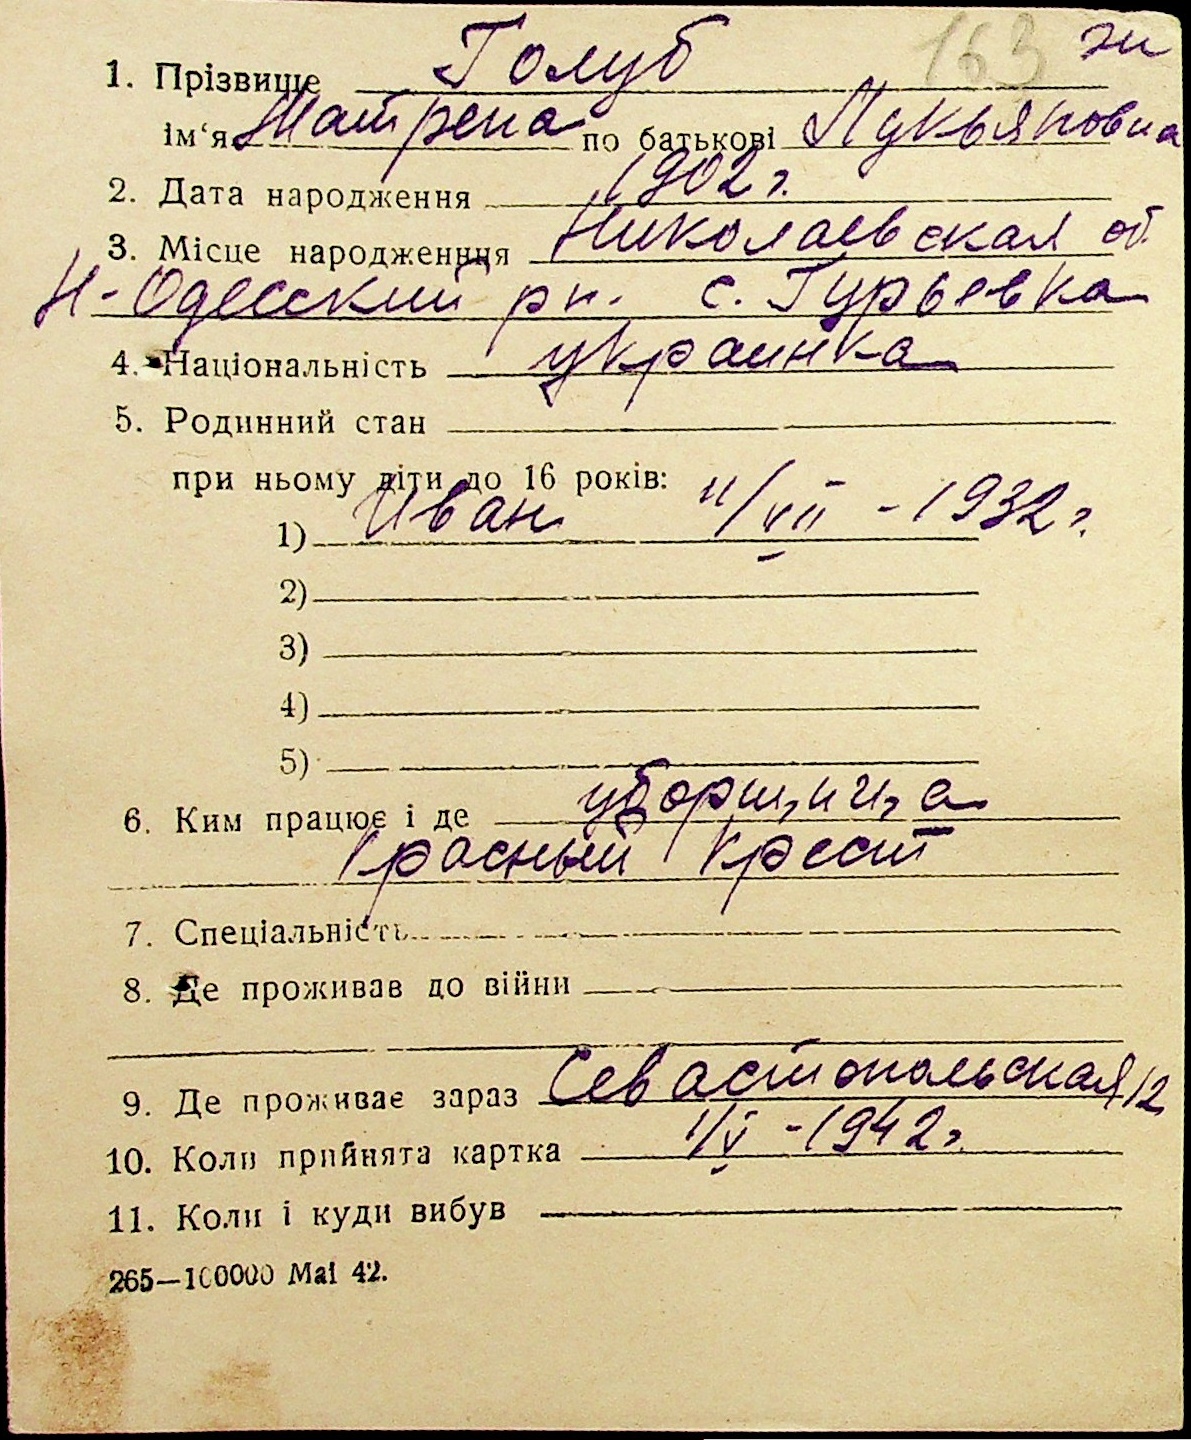 163 жи
1. Прізвище Голуб
ім‘я Матрена по батькові Лукьяновна
2. Дата народження 1902 г.
3. Місце народженння Николаевская об.
Н-Одесский рн. с. Гурьевка
4. Національність украинка
5. Родинний стан
при ньому діти до 16 років:
1) Иван 11/VII - 1932 г.
2)
3)
4)
5)
6. Ким працює і де уборщица
Красный Крест
7. Спеціальність
8. Де проживав до війни
9. Де проживає зараз Севастопольская 12
10. Коли прийнята картка 1/V - 1942 г.
11. Коли і куди вибув
265—100000 Mai 42.